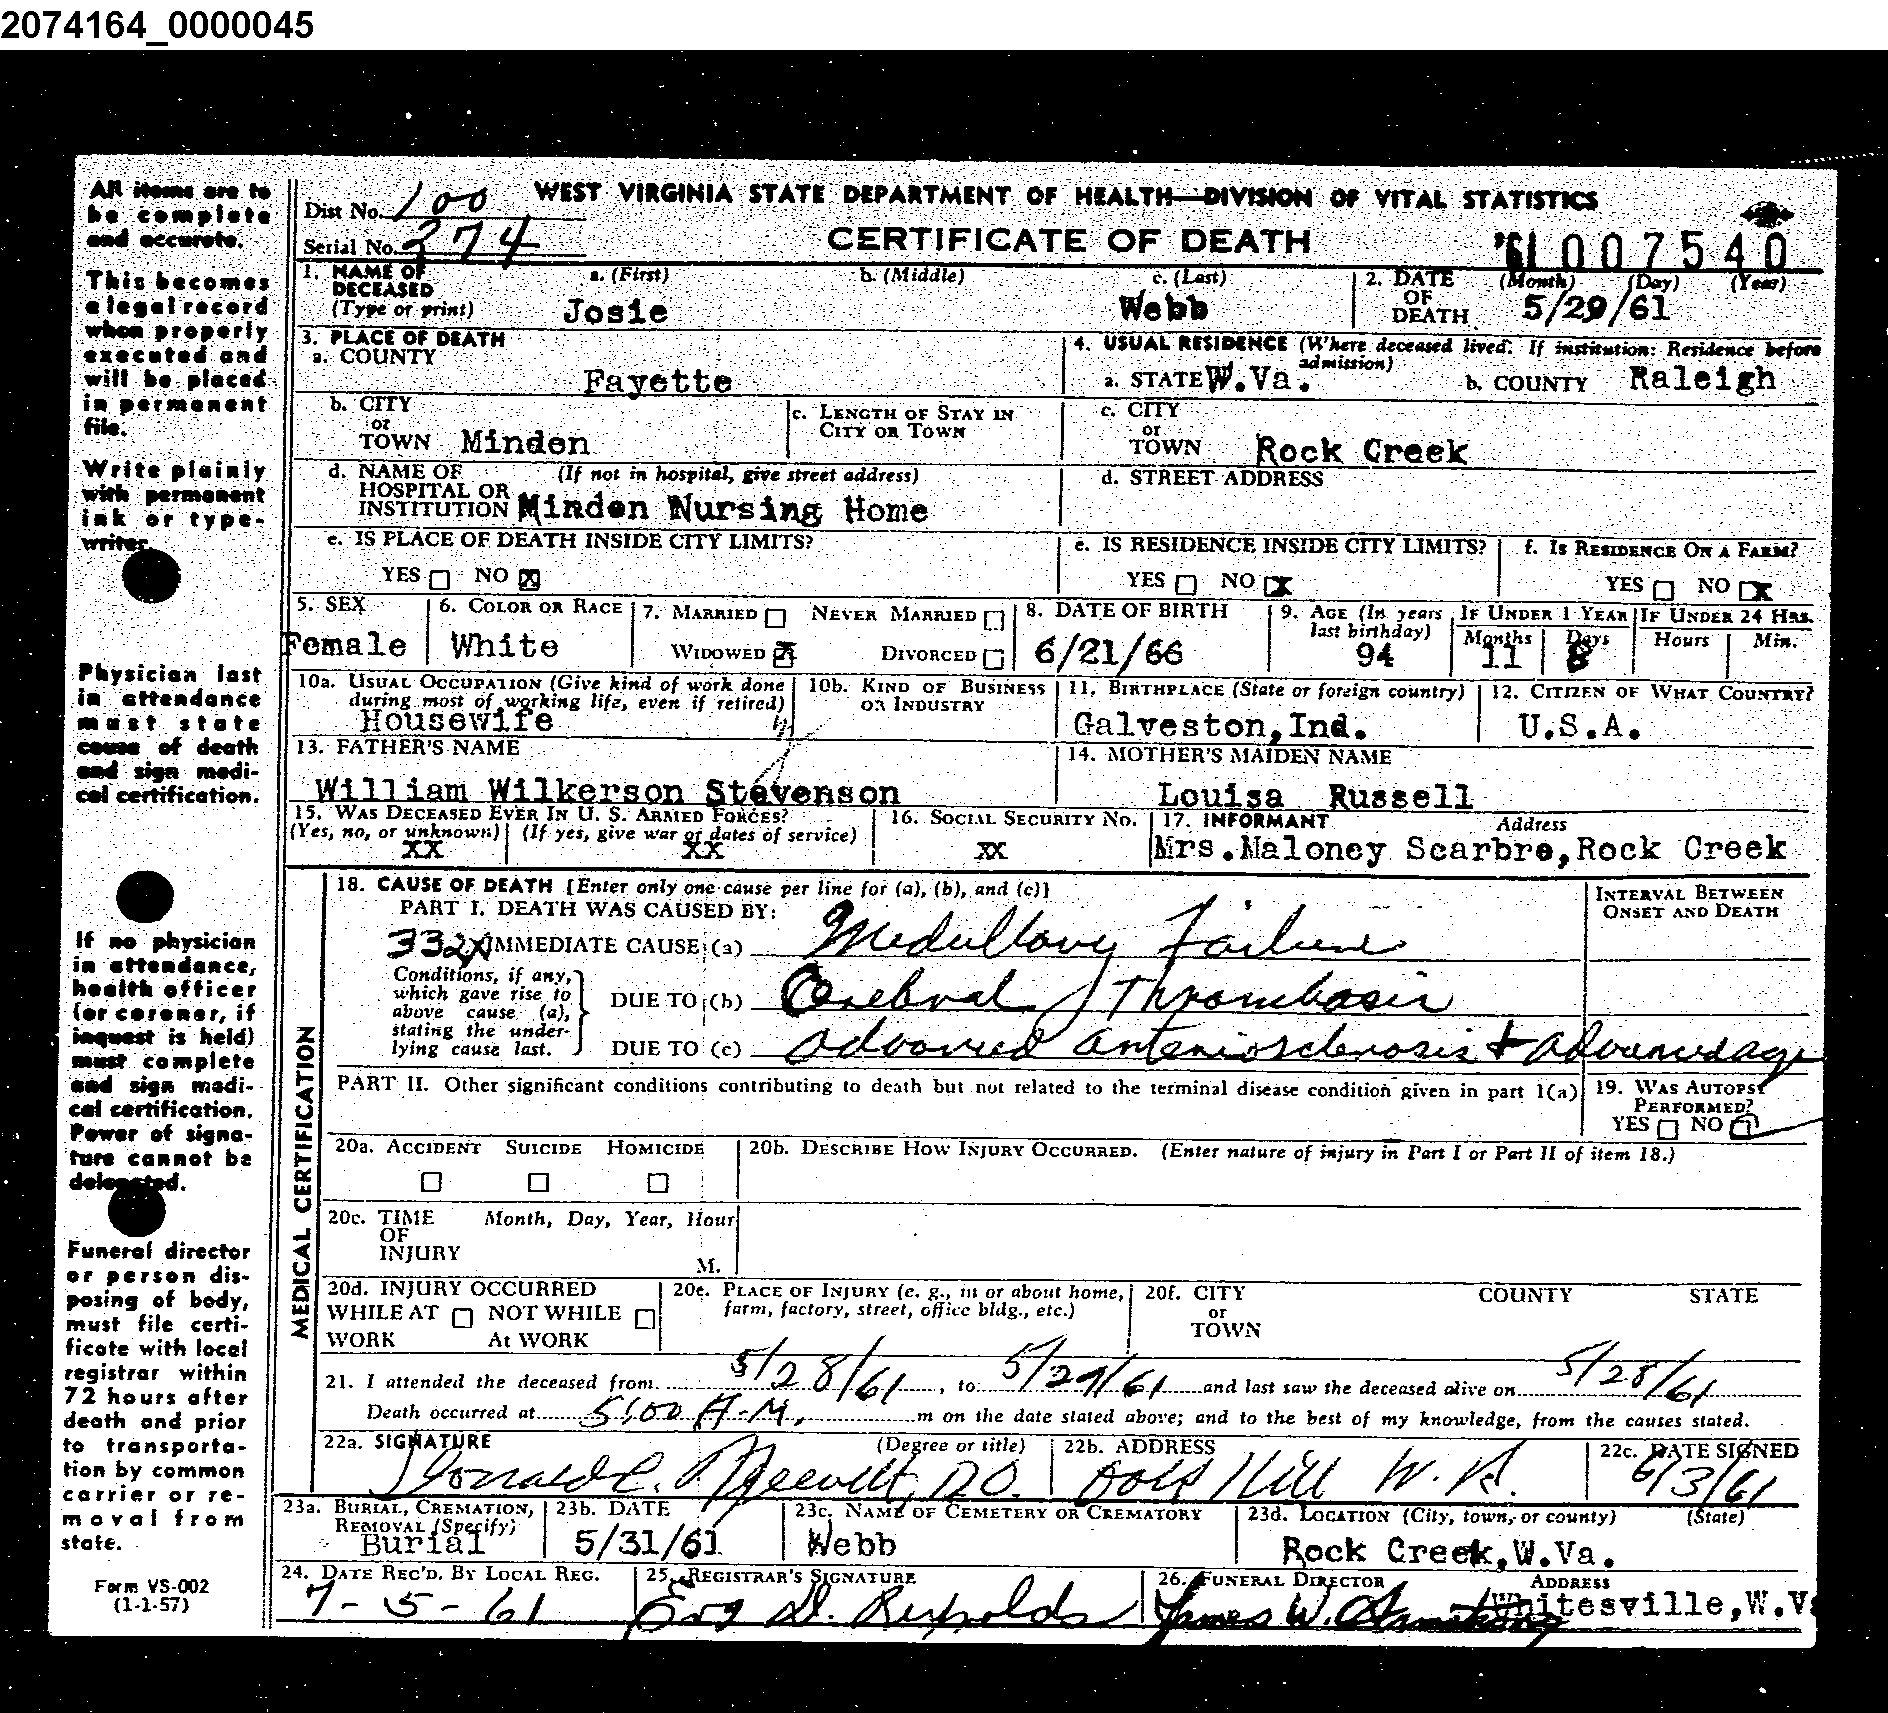 2074164_0000045
All items are to
be complete
and accurate.
This becomes
a legal record
when properly
executed and
will be placed
in permanent
file.
Write plainly
with permanent
ink or type-
writer.
Physician last
in attendance
must state
cause of death
and sign medi-
cal certification.
If no physician
in attendance,
health officer
(or coroner, if
inquest is held)
must complete
and sign medi-
cal certification.
Power of signa-
ture cannot be
delegated.
Funeral director
or person dis-
posing of body,
must file certi-
ficate with local
registrar within
72 hours after
death and prior
to transporta-
tion by common
carrier or re-
moval from
state.
Form VS-002
(1-1-57)
Dist No. 100 WEST VIRGINIA STATE DEPARTMENT OF HEALTH—DIVISION OF VITAL STATISTICS
Serial No. 374 CERTIFICATE OF DEATH '61 007540
1. NAME OF DECEASED (Type or print) a. (First) b. (Middle) c. (Last) 2. DATE OF DEATH (Month) (Day) (Year)
Josie Webb 5/29/61
3. PLACE OF DEATH 4. USUAL RESIDENCE (Where deceased lived. If institution: Residence before admission)
a. COUNTY Fayette a. STATE W.Va. b. COUNTY Raleigh
b. CITY or TOWN Minden c. LENGTH OF STAY IN CITY OR TOWN c. CITY or TOWN Rock Creek
d. NAME OF HOSPITAL OR INSTITUTION (If not in hospital, give street address) Minden Nursing Home d. STREET ADDRESS
e. IS PLACE OF DEATH INSIDE CITY LIMITS? e. IS RESIDENCE INSIDE CITY LIMITS? f. IS RESIDENCE ON A FARM?
YES NO X YES NO X YES NO X
5. SEX 6. COLOR OR RACE 7. MARRIED NEVER MARRIED 8. DATE OF BIRTH 9. AGE (In years last birthday) IF UNDER 1 YEAR IF UNDER 24 HRS.
Months Days Hours Min.
Female White WIDOWED X DIVORCED 6/21/66 94 11 8
10a. USUAL OCCUPATION (Give kind of work done during most of working life, even if retired) 10b. KIND OF BUSINESS OR INDUSTRY 11. BIRTHPLACE (State or foreign country) 12. CITIZEN OF WHAT COUNTRY?
Housewife Galveston,Ind. U.S.A.
13. FATHER'S NAME 14. MOTHER'S MAIDEN NAME
William Wilkerson Stevenson Louisa Russell
15. WAS DECEASED EVER IN U. S. ARMED FORCES? 16. SOCIAL SECURITY NO. 17. INFORMANT Address
(Yes, no, or unknown) (If yes, give war or dates of service)
XX XX XX Mrs.Maloney Scarbro,Rock Creek
MEDICAL CERTIFICATION
18. CAUSE OF DEATH [Enter only one cause per line for (a), (b), and (c)] INTERVAL BETWEEN ONSET AND DEATH
PART I. DEATH WAS CAUSED BY:
332X IMMEDIATE CAUSE (a) Medullary Failure
Conditions, if any, which gave rise to above cause (a), stating the underlying cause last.
DUE TO (b) Cerebral Thrombosis
DUE TO (c) Advanced arteriosclerosis + Advanced age
PART II. Other significant conditions contributing to death but not related to the terminal disease condition given in part 1(a) 19. WAS AUTOPSY PERFORMED?
YES NO
20a. ACCIDENT SUICIDE HOMICIDE 20b. DESCRIBE HOW INJURY OCCURRED. (Enter nature of injury in Part I or Part II of item 18.)
20c. TIME OF INJURY Month, Day, Year, Hour
M.
20d. INJURY OCCURRED 20e. PLACE OF INJURY (e. g., in or about home, farm, factory, street, office bldg., etc.) 20f. CITY or TOWN COUNTY STATE
WHILE AT WORK NOT WHILE At WORK
21. I attended the deceased from 5/28/61, to 5/29/61 and last saw the deceased alive on 5/28/61
Death occurred at 5:00 A.M. m on the date stated above; and to the best of my knowledge, from the causes stated.
22a. SIGNATURE (Degree or title) 22b. ADDRESS 22c. DATE SIGNED
Donald C. D.O. Oak Hill W. Va. 6/3/61
23a. BURIAL, CREMATION, REMOVAL (Specify) 23b. DATE 23c. NAME OF CEMETERY OR CREMATORY 23d. LOCATION (City, town, or county) (State)
Burial 5/31/61 Webb Rock Creek,W.Va.
24. DATE REC'D. BY LOCAL REG. 25. REGISTRAR'S SIGNATURE 26. FUNERAL DIRECTOR ADDRESS
7-5-61 Eva D. Reynolds James W. Armstrong Whitesville,W.Va